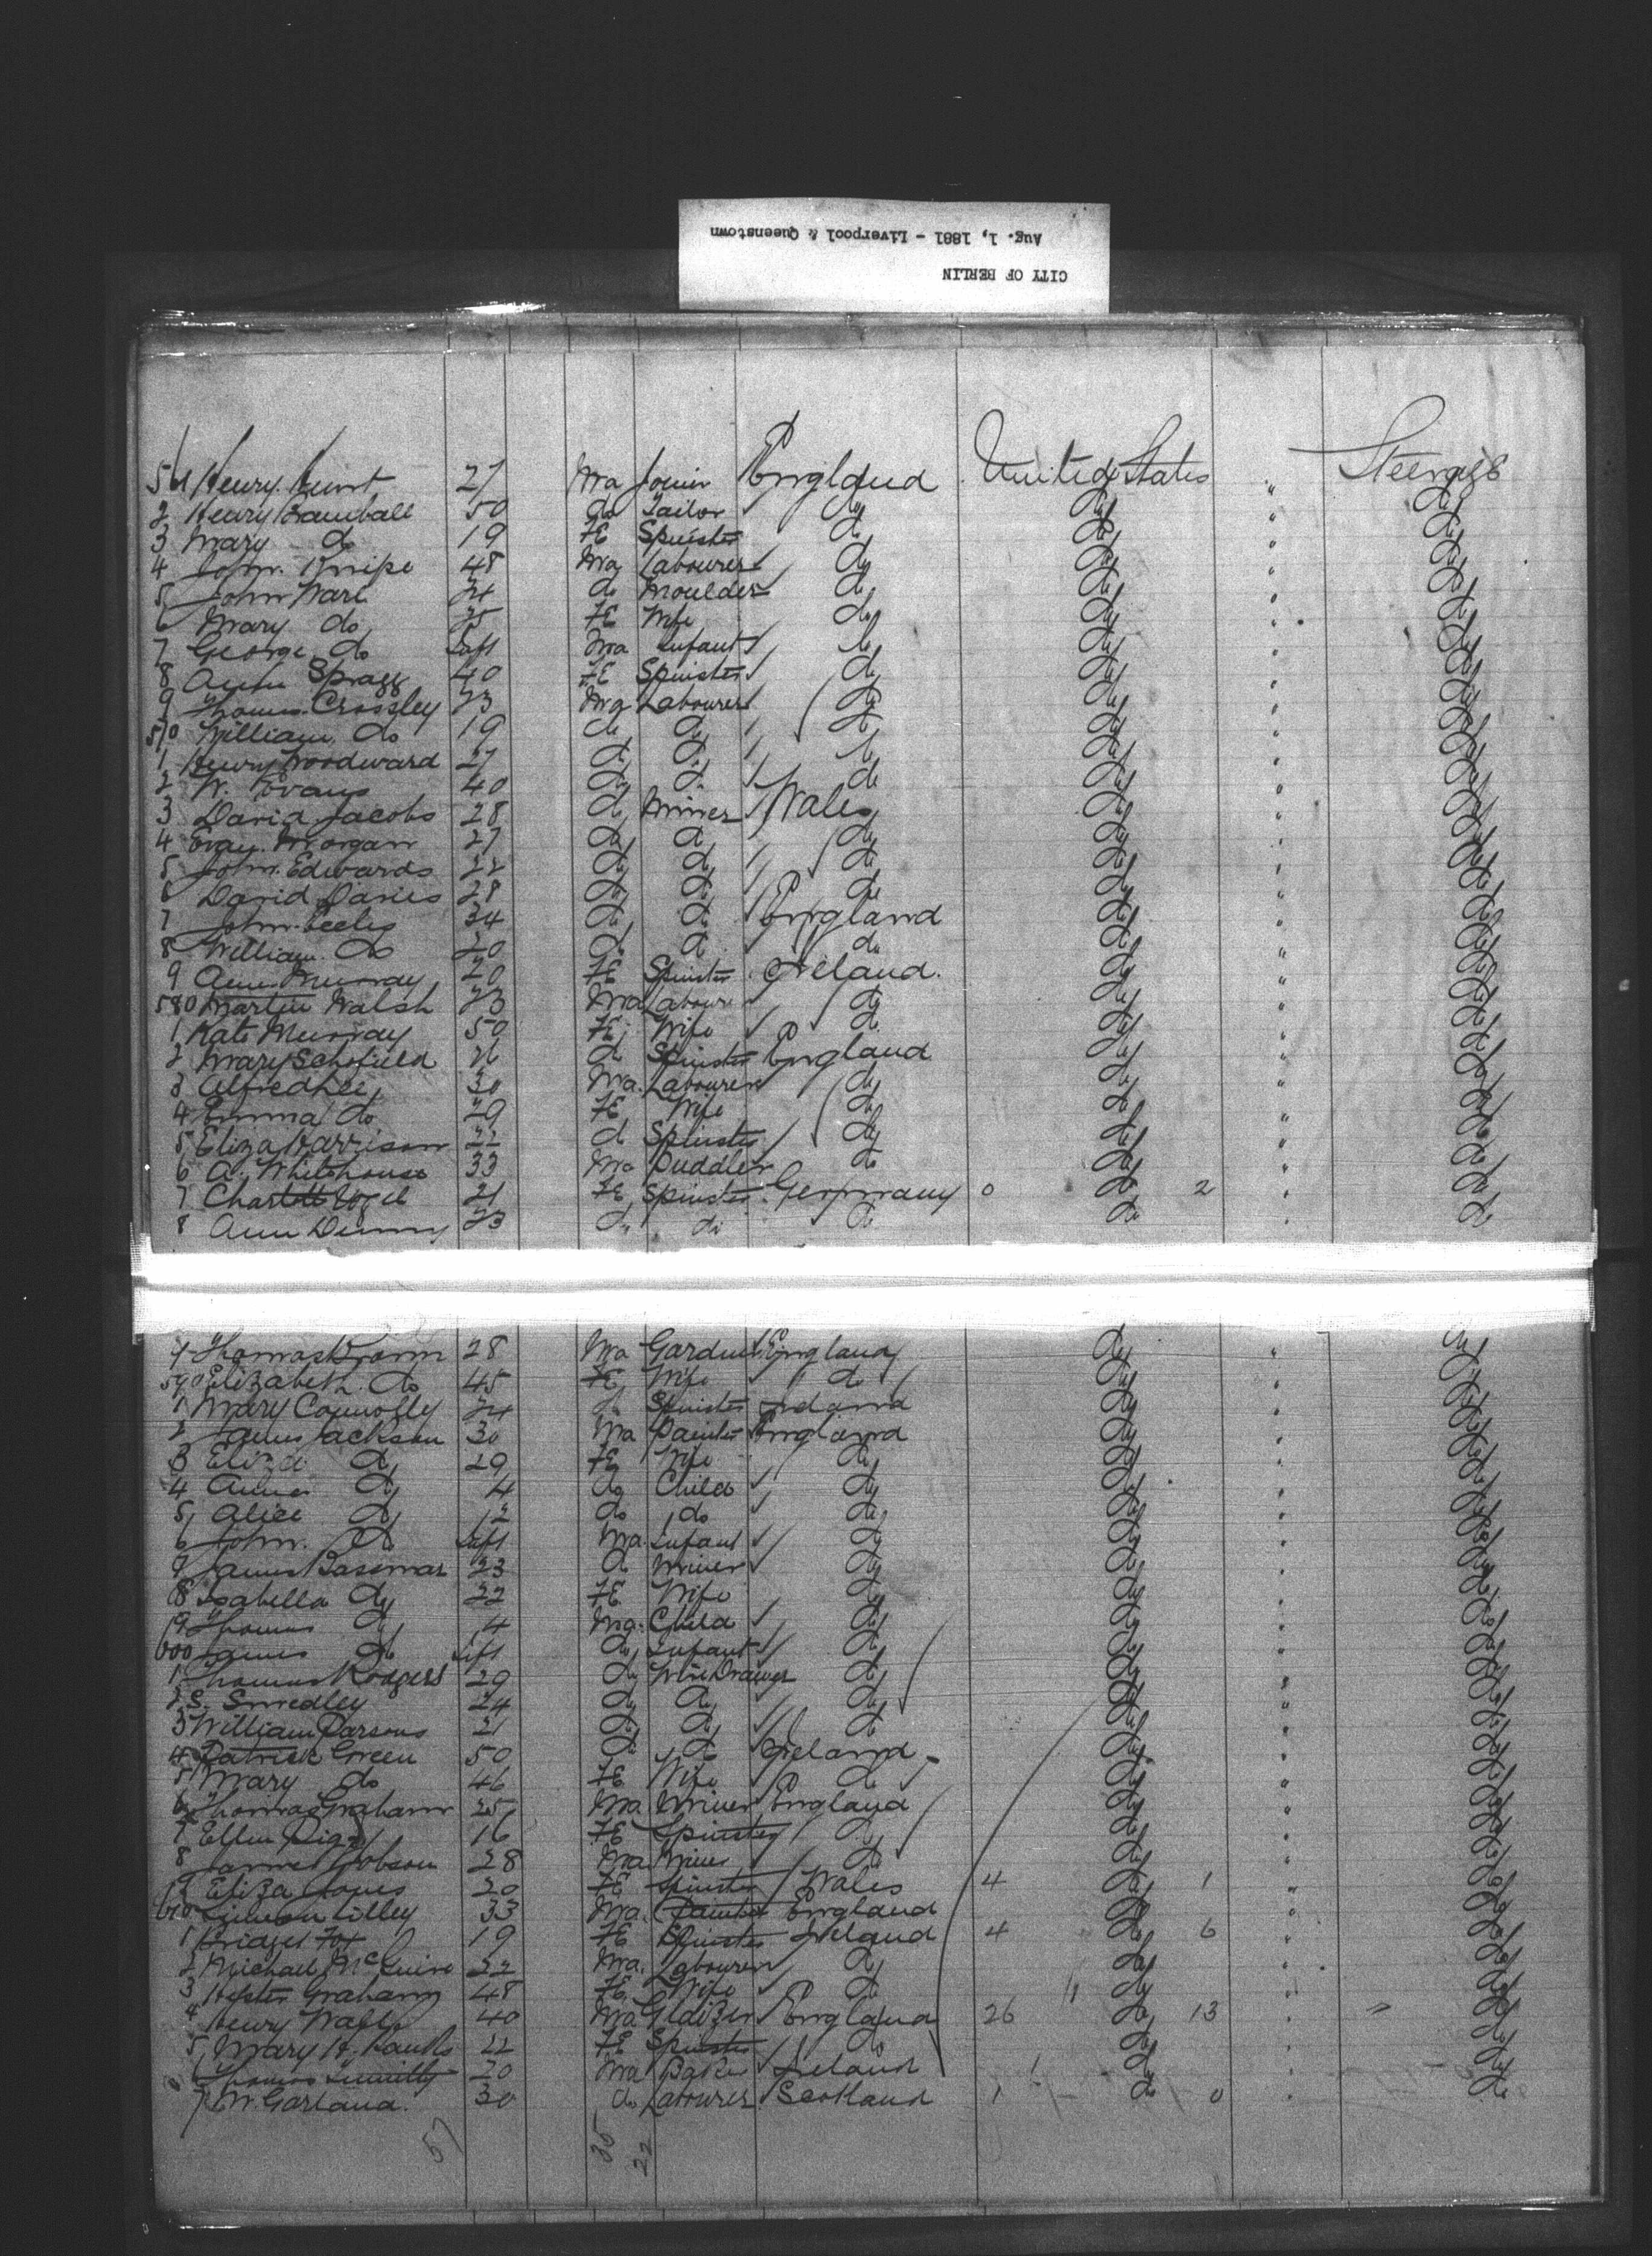 CITY OF BERLIN
Aug. 1, 1881 - Liverpool & Queenstown
561 Henry 27 Ma Joiner England United States " Steerage
2 Henry 50 do Tailor do do " do
3 Mary do 19 FE Spinster do do " do
4 John Knipe 48 Ma Labourer do do " do
5 John 24 do Moulder do do " do
6 Mary do 25 FE Wife do do " do
7 George do Inft Ma Infant do do " do
8 Ann Spragg 40 FE Spinster do do " do
9 Thomas Crossley 23 Ma Labourer do do " do
570 William do 19 do do do do " do
1 Henry Woodward 27 do do do do " do
2 W. Evans 40 do do do do " do
3 David Jacobs 28 do Miner Wales do " do
4 Evan Morgan 27 do do do do " do
5 John Edwards 22 do do do do " do
6 David Davies 28 do do do do " do
7 John 34 do do England do " do
8 William do 20 do do do do " do
9 Ann Murray 20 FE Spinster Ireland do " do
580 Martin Walsh 23 Ma Labourer do do " do
1 Kate Murray 50 FE Wife do do " do
2 Mary Schofield 26 do Spinster England do " do
3 Alfred Lee 30 Ma Labourer do do " do
4 Emma do 29 FE Wife do do " do
5 Eliza Harrison 22 do Spinster do do " do
6 A. Whitehouse 33 Ma Puddler do do " do
7 21 FE Spinster Germany 0 do 2 " do
8 Ann 23 do do do do " do
9 Thomas 28 Ma England do " do
590 Elizabeth do 45 FE Wife do do " do
1 Mary Connolly 24 do Spinster Ireland do " do
2 James Jackson 30 Ma Painter England do " do
3 Eliza do 29 FE Wife do do " do
4 do 4 do Child do do " do
5 Alice do do do do do " do
6 John do Inft Ma Infant do do " do
7 James 23 do Miner do do " do
8 Isabella do 22 FE Wife do do " do
9 Thomas do 4 Ma Child do do " do
600 James do Inft do Infant do do " do
1 Thomas Rodgers 29 do Wire Drawer do do " do
2 S. Smedley 24 do do do do " do
3 William Parsons 21 do do do do " do
4 Patrick Green 50 do do Ireland do " do
5 Mary do 46 FE Wife do do " do
6 Thomas Graham 25 Ma Miner England do " do
7 Ellen 16 FE Spinster do do " do
8 28 Ma Miner do do " do
9 Eliza Jones 20 FE Spinster Wales 4 do 1 " do
610 Lilley 33 Ma Painter England do " do
1 Bridget Fox 19 FE Spinster Ireland 4 do 6 " do
2 Michael McGuire 22 Ma Labourer do do do
3 Hester Graham 48 FE Wife do do do
4 Henry 40 Ma Glazier England 26 do 13 " do
5 Mary H. 22 FE Spinster do do do
6 Thomas 20 Ma Baker Ireland 1 do do
7 W. Garland 30 do Labourer Scotland 1 do 0 " do
57 35 22